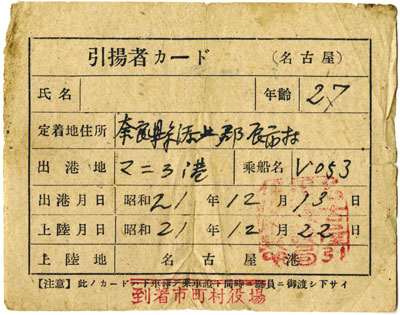 引揚者カード (名古屋)
氏名 年齢 27
定着地住所 奈良縣添上郡辰市村
出港地 マニラ港 乗船名 V053
出港月日 昭和21年12月13日
上陸月日 昭和21年12月22日
上陸地 名古屋港
【注意】此ノカードハ下車驛デ乗車證ト同時ニ驛員ニ御渡シ下サイ
到著市町村役場